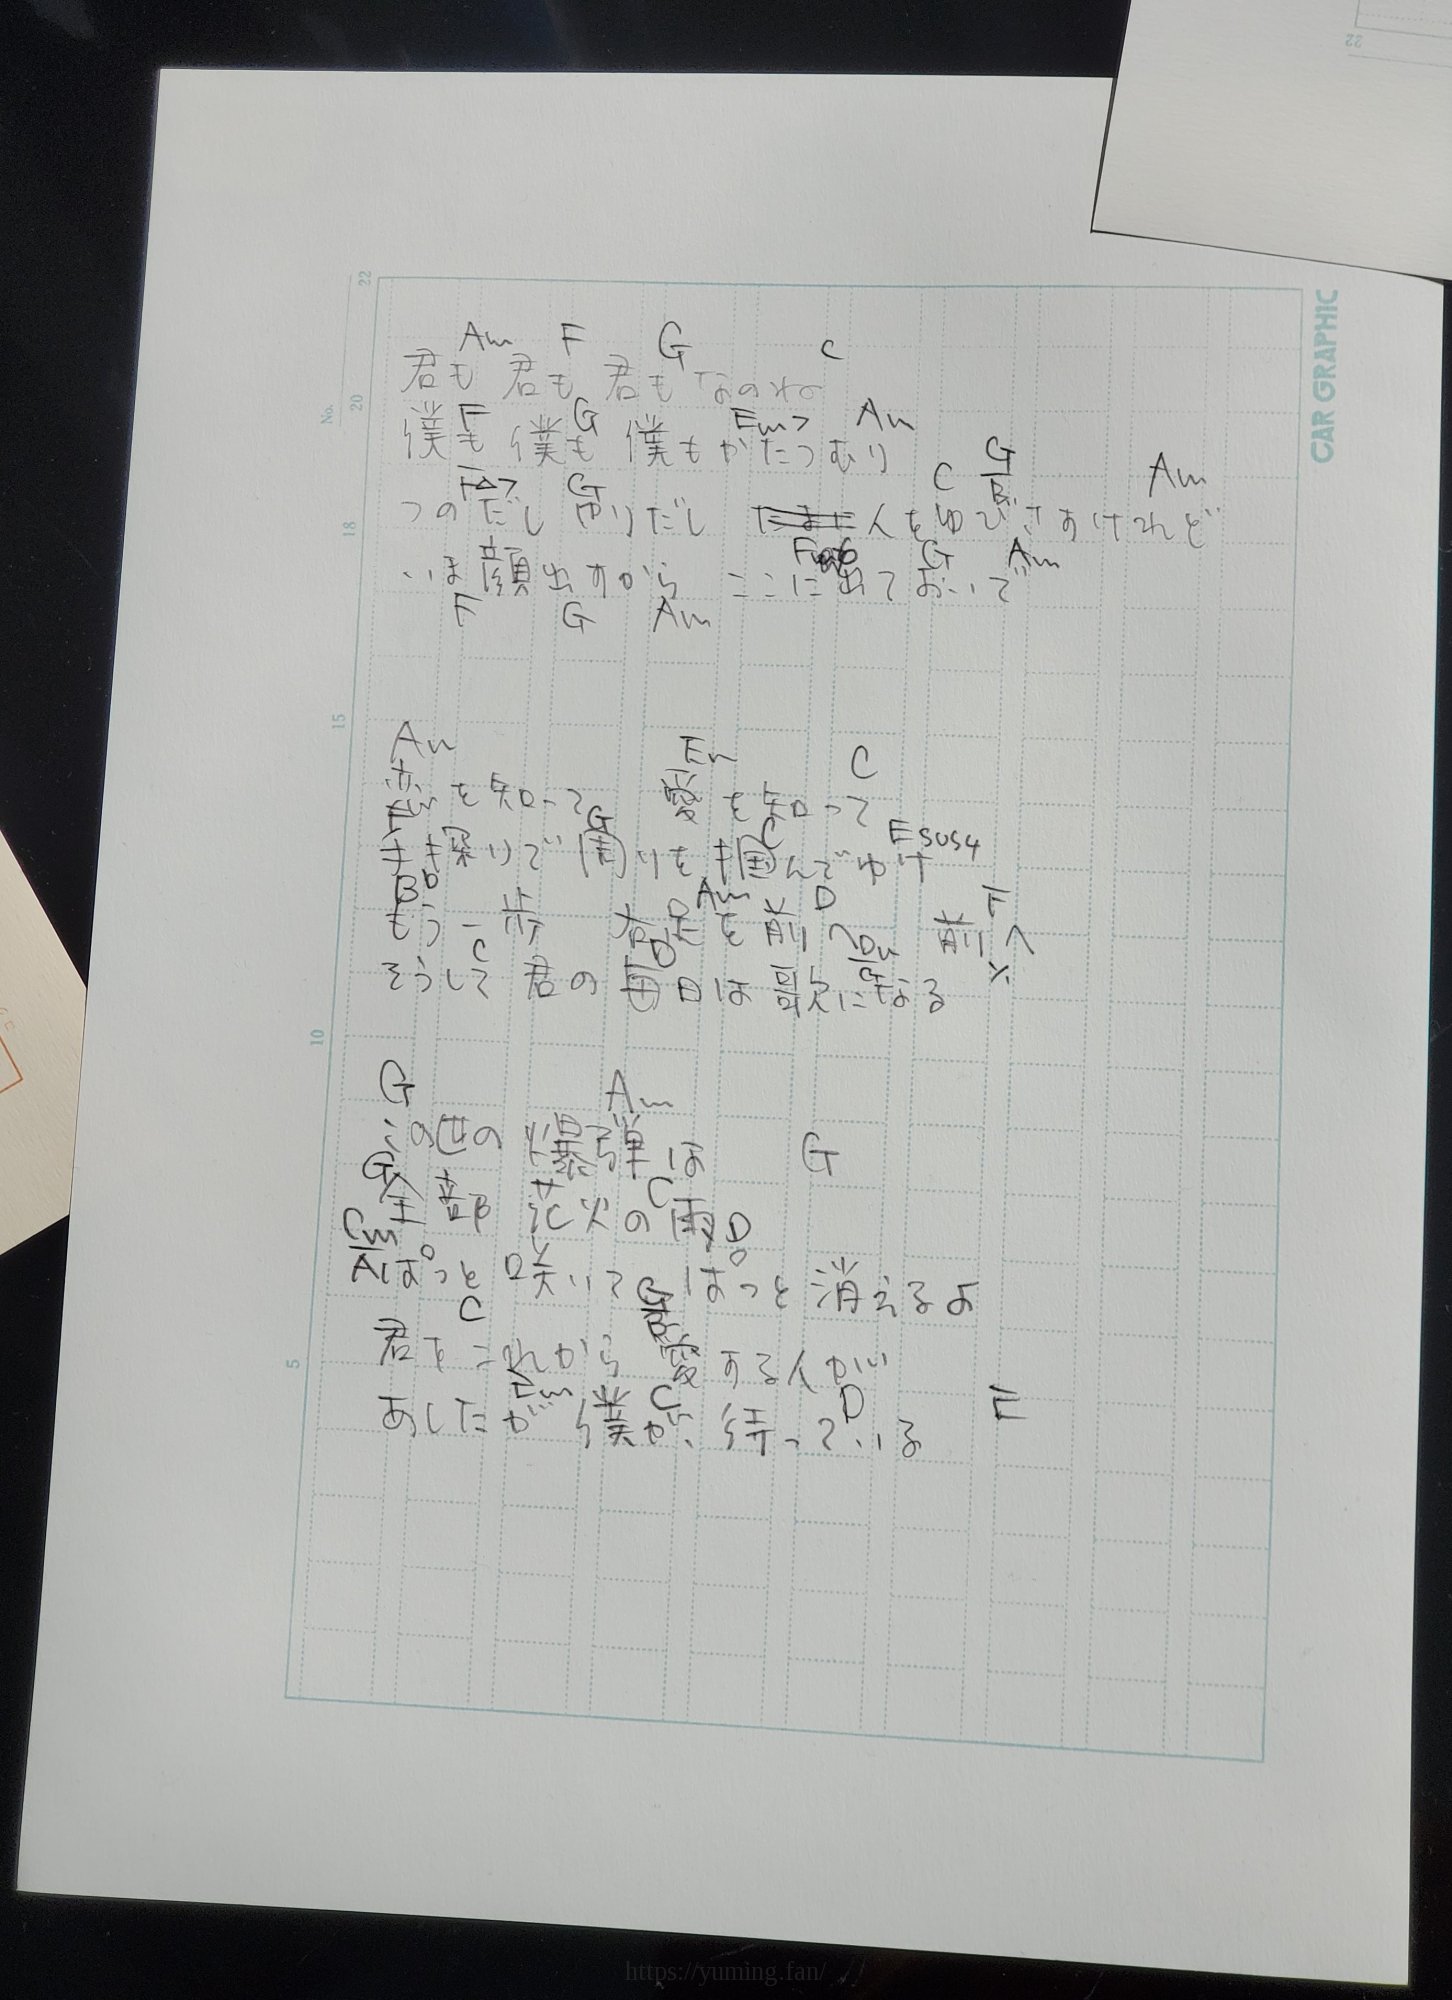 22
CAR GRAPHIC
22
No.
20
18
15
10
5
Am F G C
君も 君も 君も なのね
F G Em7 Am
僕も 僕も 僕も かたつむり
F△7 G C G/B Am
つのだし やりだし 人をゆびさすけれど
G Am
いま顔出すから ここに出ておいで
F G Am
Am Em C
恋を知って 愛を知って
G C Esus4
手探りで 周りを 囲んでゆけ
Am D F
もう一歩 右足を前へ 前へ
C Dm/G ٪
そうして 君の 毎日は 歌になる
G Am
この世の 爆弾は
G C G
全部 花火の雨
Cm/A D
ぱっと 咲いて ぱっと 消えるよ
C G/B
君をこれから 愛する人が
Fm C D F
あしたが 僕が、待っている
https://yuming.fan/